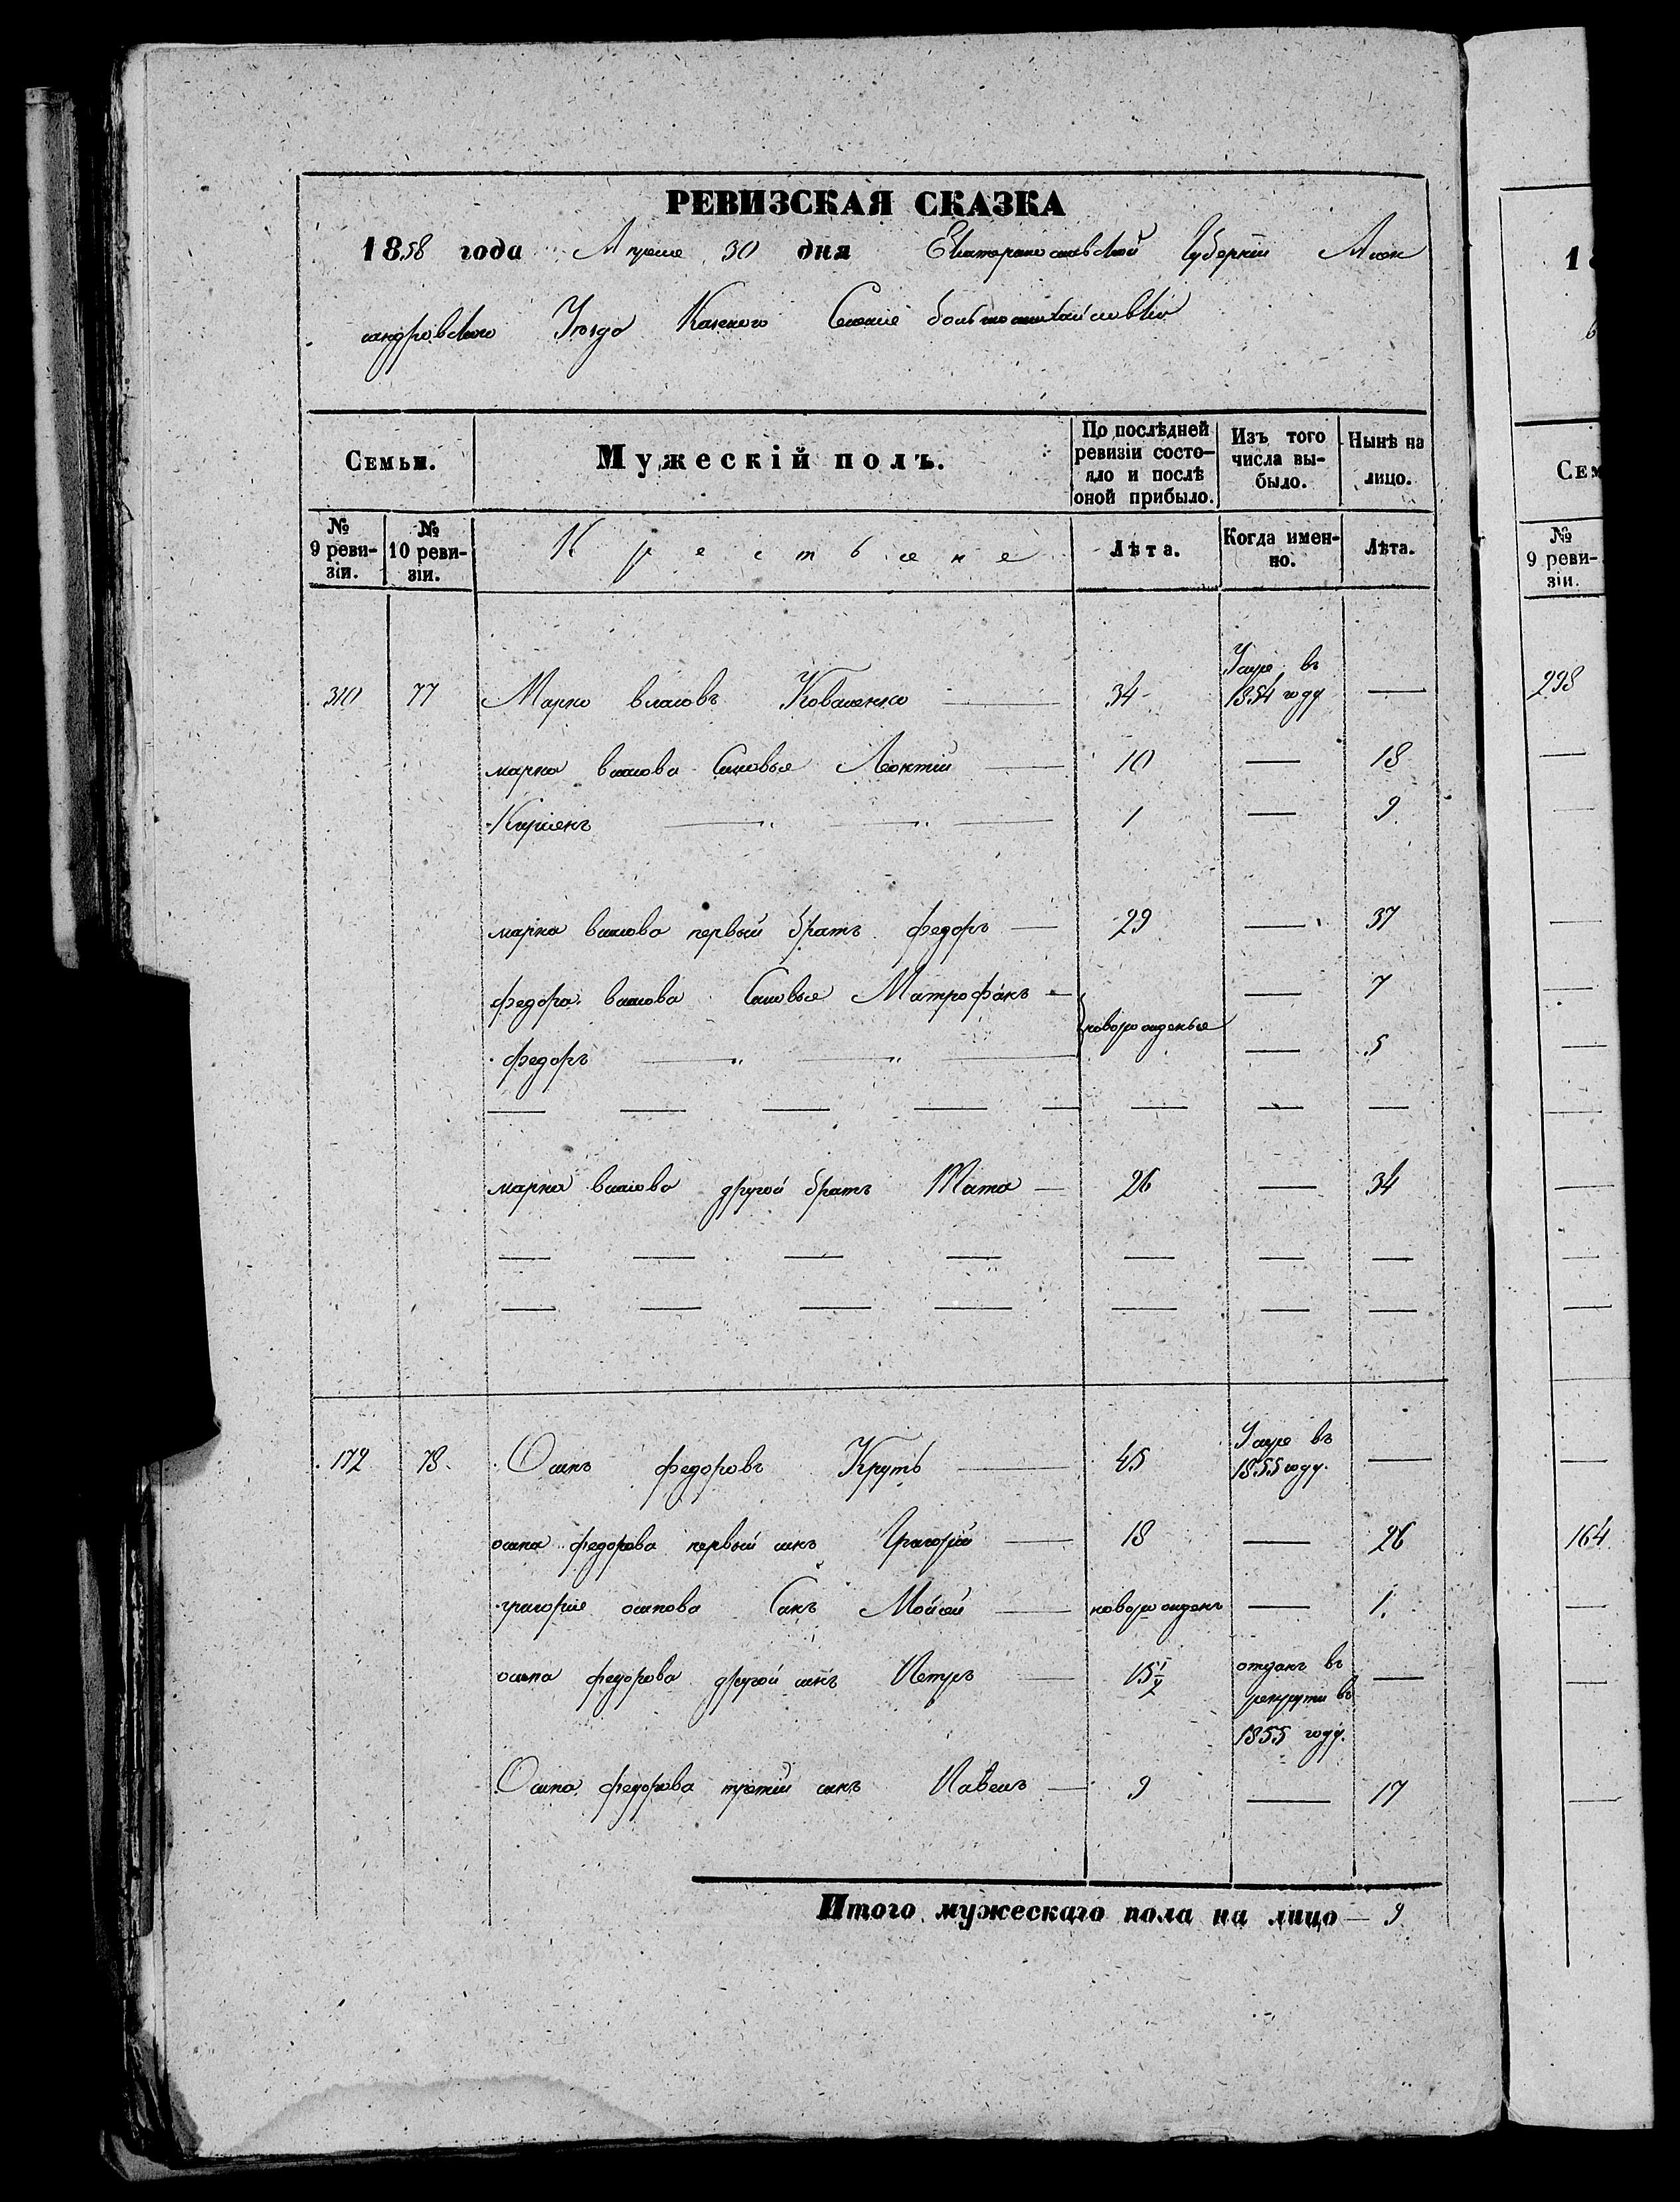 РЕВИЗСКАЯ СКАЗКА
1858 года Апреля 30 дня Екатеринославской Губернiи Алек
сандровского Уезда Казеного Селения большемихайловки
Семьи. Мужескiй полъ. По послѣдней ревизiи состояло и послѣ оной прибыло. Изъ того числа выбыло. Нынѣ на лицо.
№ 9 ревизiи. № 10 ревизiи. Крестьяне Лѣта. Когда именно. Лѣта.
310 77 Марко власовъ Коваленко — 34 Умре въ 1854 году —
марка власова Сыновья Леонтiй — 10 — 18
Кириенъ — " — " — 1 — 9
марка власова первый братъ федоръ — 29 — 37
федора власова Сыновья Матрофанъ — новорожденые — 7
федоръ — " — " — — 5
— — — — — — — —
марка власова другой братъ — 26 — 34
— — — — — — —
— — — — — — —
172 78 Осипъ федоровъ Круть — 45 Умре въ 1855 году. —
осипа федорова первый сынъ Григорiй — 18 — 26
григорiя осипова Сынъ Мойсей — новорожденъ — 1.
осипа федорова другой сынъ Петръ — 15½ отданъ въ рекруты въ 1855 году. —
Осипа федорова третiй сынъ Павелъ — 9 — 17
Итого мужескаго пола на лицо — 9
1
Сем
№ 9 ревизiи.
298
164